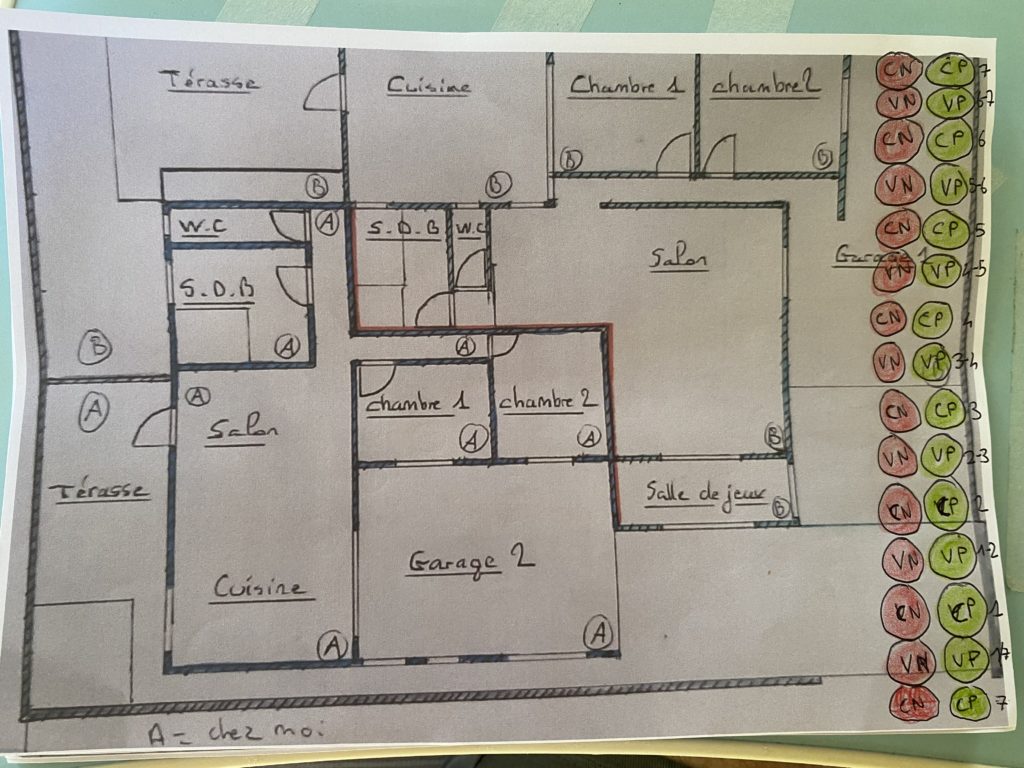 Térasse
Cuisine
Chambre 1
chambre 2
B
B
B
B
W.C
A
S.D.B
W.C
Salon
Garage 1
S.D.B
B
A
A
A
A
Salon
chambre 1
chambre 2
A
A
B
Térasse
Salle de jeux
B
Garage 2
Cuisine
A
A
A = chez moi
CN CP 7
VN VP 67
CN CP 6
VN VP 5-6
CN CP 5
VN VP 4-5
CN CP 4
VN VP 3-4
CN CP 3
VN VP 2-3
CN CP 2
VN VP 1-2
CN CP 1
VN VP 17
CN CP 7